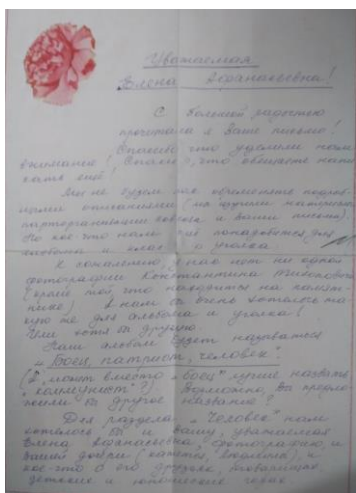 Уважаемая
Елена Афанасьевна!
С большой радостью
прочитали я Ваше письмо!
Спасибо что уделили нам
внимание! Спасибо, что обещаете напи
сать ещё!
Мы не будем Вас обременять
Но кое-что нам ещё понадобится для
альбома и уголка.
К сожалению, у нас нет ни одной
фотографии Константина
(кроме той, что находится на памят-
нике). А нам бы очень хотелось та-
кую же для альбома и уголка!
Или хотя бы другую.
Наш альбом будет называться
"Боец, патриот, человек".
(А может вместо "боец" лучше назвать
"коммунист"? Возможно, Вы предло
жили бы другое название?
Для раздела "Человек" нам
хотелось бы и Вашу, уважаемая
Елена Афанасьевна, фотографию, и
Вашей дочери (кажется, Людмила), и
кое-что о его друзьях, товарищах,
детские и юношеские годы